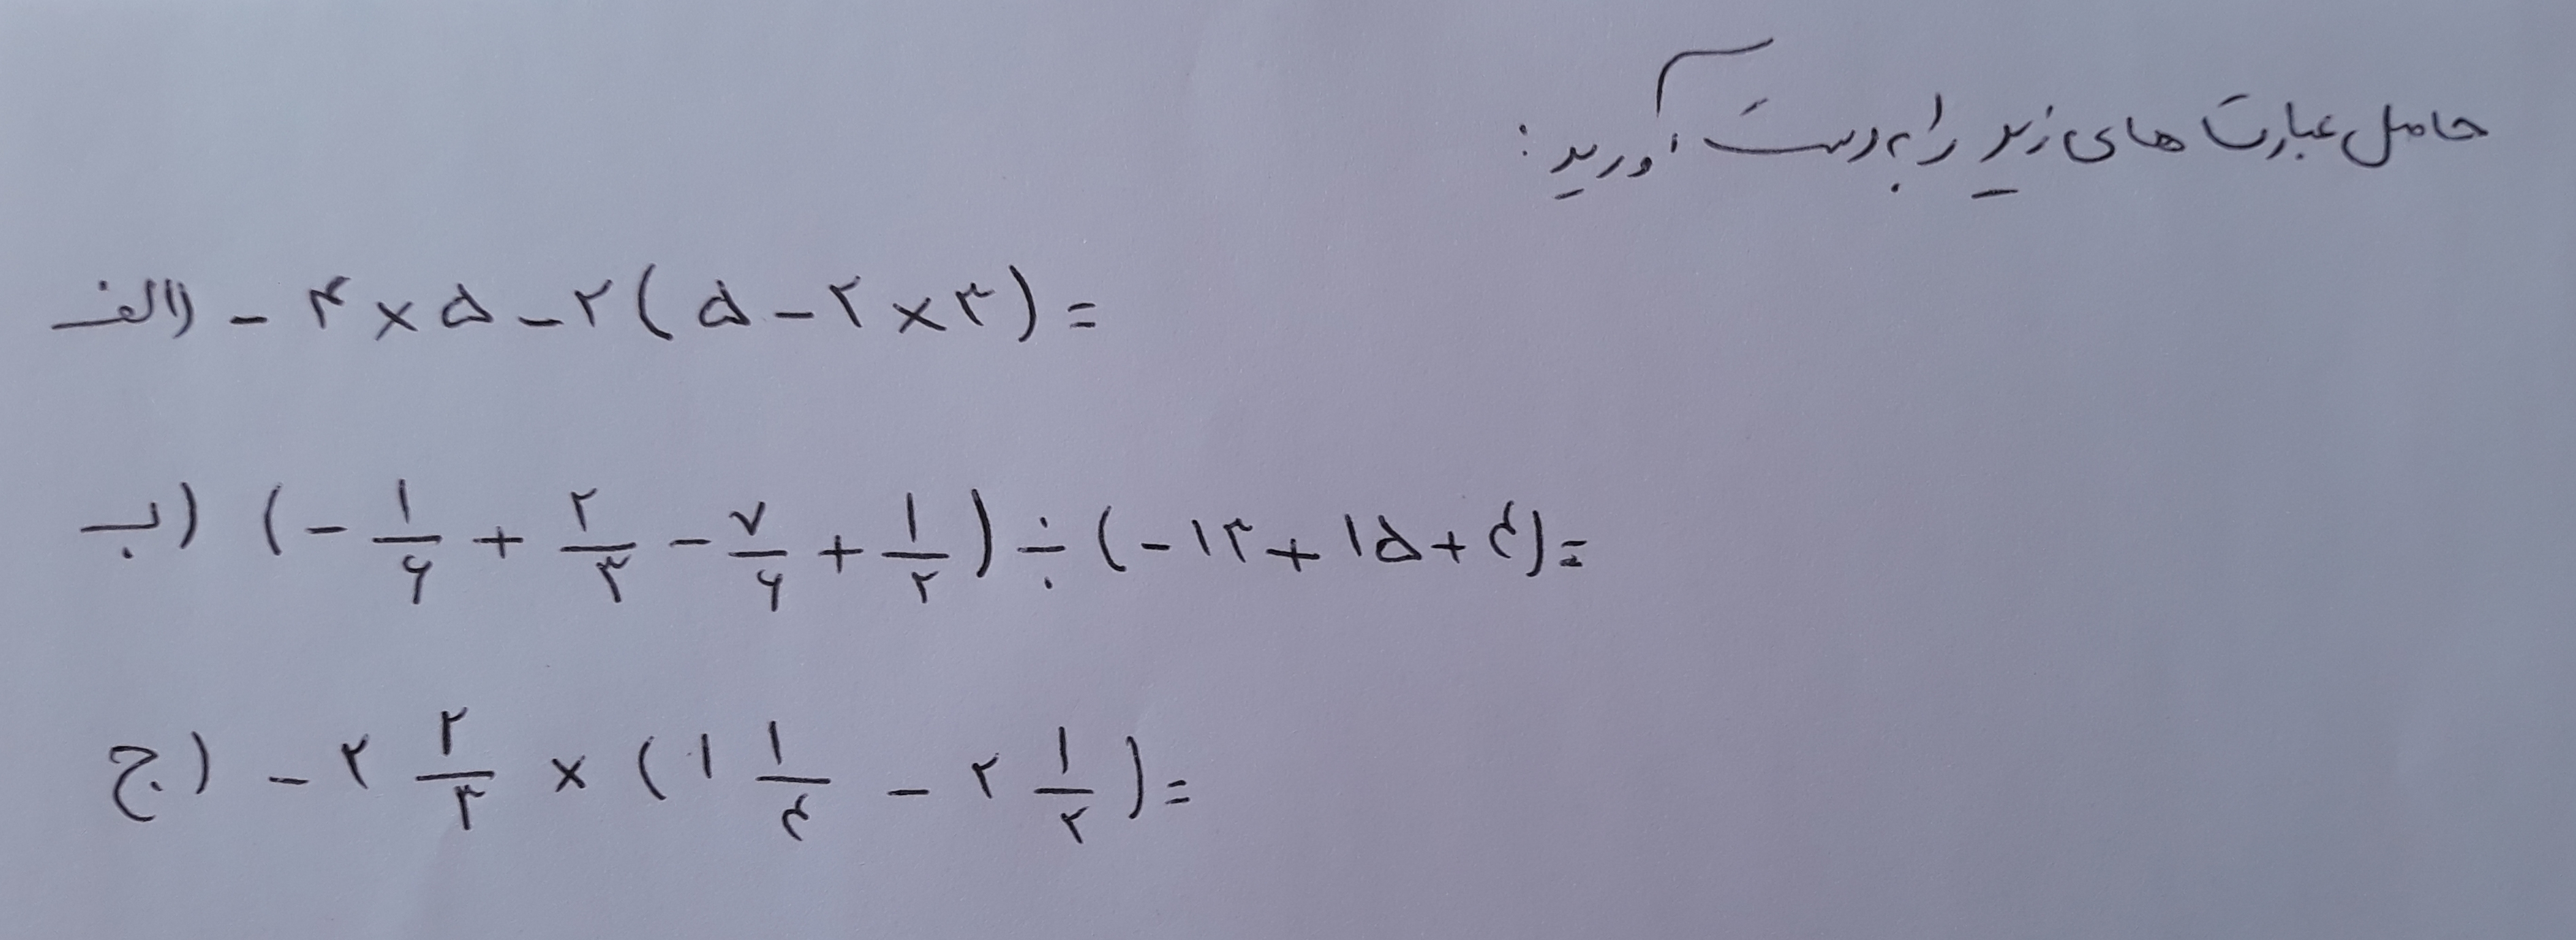 حاصل عبارت های زیر را به دست آورید:
الف) - ۴ × ۵ - ۲ ( ۵ - ۲ × ۳ ) =
ب) ( - ۱/۶ + ۲/۳ - ۷/۶ + ۱/۲ ) ÷ ( - ۱۳ + ۱۵ + ۴ ) =
ج) - ۲ ۲/۳ × ( ۱ ۱/۴ - ۲ ۱/۲ ) =